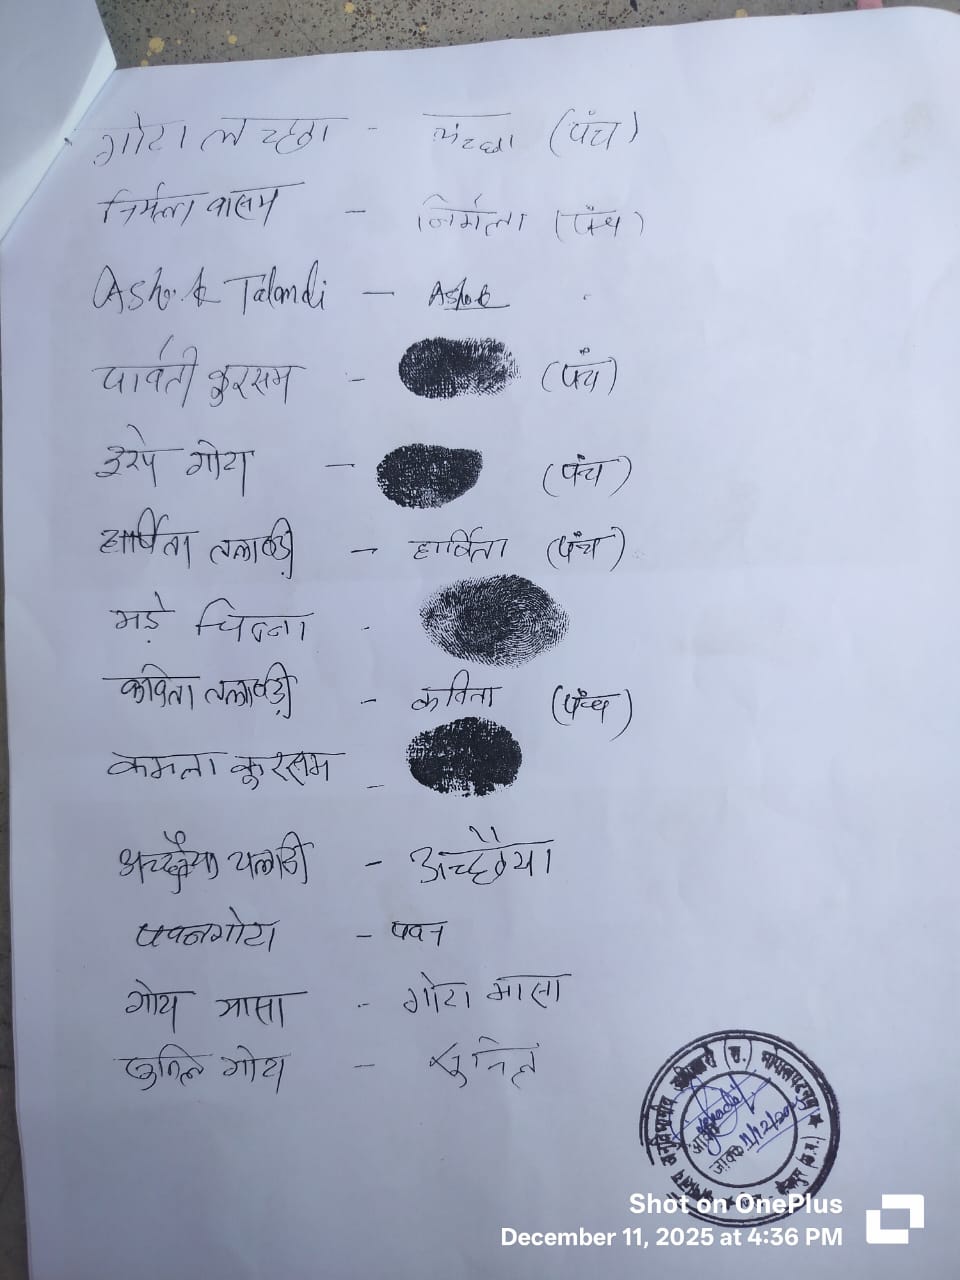 गोटा लच्छा - लच्छा (पंच)
निर्मला वासम - निर्मला (पंच)
Ashok Talandi - Ashok
पार्वती कुरसम - (पंच)
इरपे गोटा - (पंच)
हार्षिता तलाण्डी - हार्षिता (पंच)
मड़े चिन्ना -
कविता तलाण्डी - कविता (पंच)
कमला कुरसम -
अच्छैया यलादी - अच्छैया
पवन गोटा - पवन
गोटा मासा - गोटा मासा
सुनिल गोटा - सुनिल
कार्यालय अनुविभागीय अधिकारी (रा.) भोपालपटनम
जावक 11/12/2025
Shot on OnePlus
December 11, 2025 at 4:36 PM